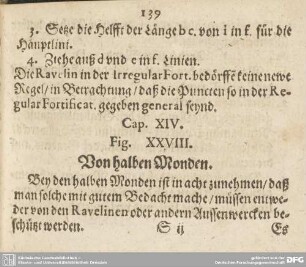 139
3. Setze die Helfft der Länge b c. von i in k. für die
Hauptlini.
4. Ziehe auß d vnd e in k. Linien.
Die Ravelin in der Irregular Fort. bedörffē keine newe
Regel / in Betrachtung / daß die Puncten so in der Re-
gular Fortificat. gegeben general seynd.
Cap. XIV.
Fig. XXVIII.
Von halben Monden.
Bey den halben Monden ist in acht zunehmen / daß
man solche mit gutem Bedacht mache / müssen entwe-
der von den Ravelinen oder andern Aussenwercken be-
schützt werden.
S ij
Es